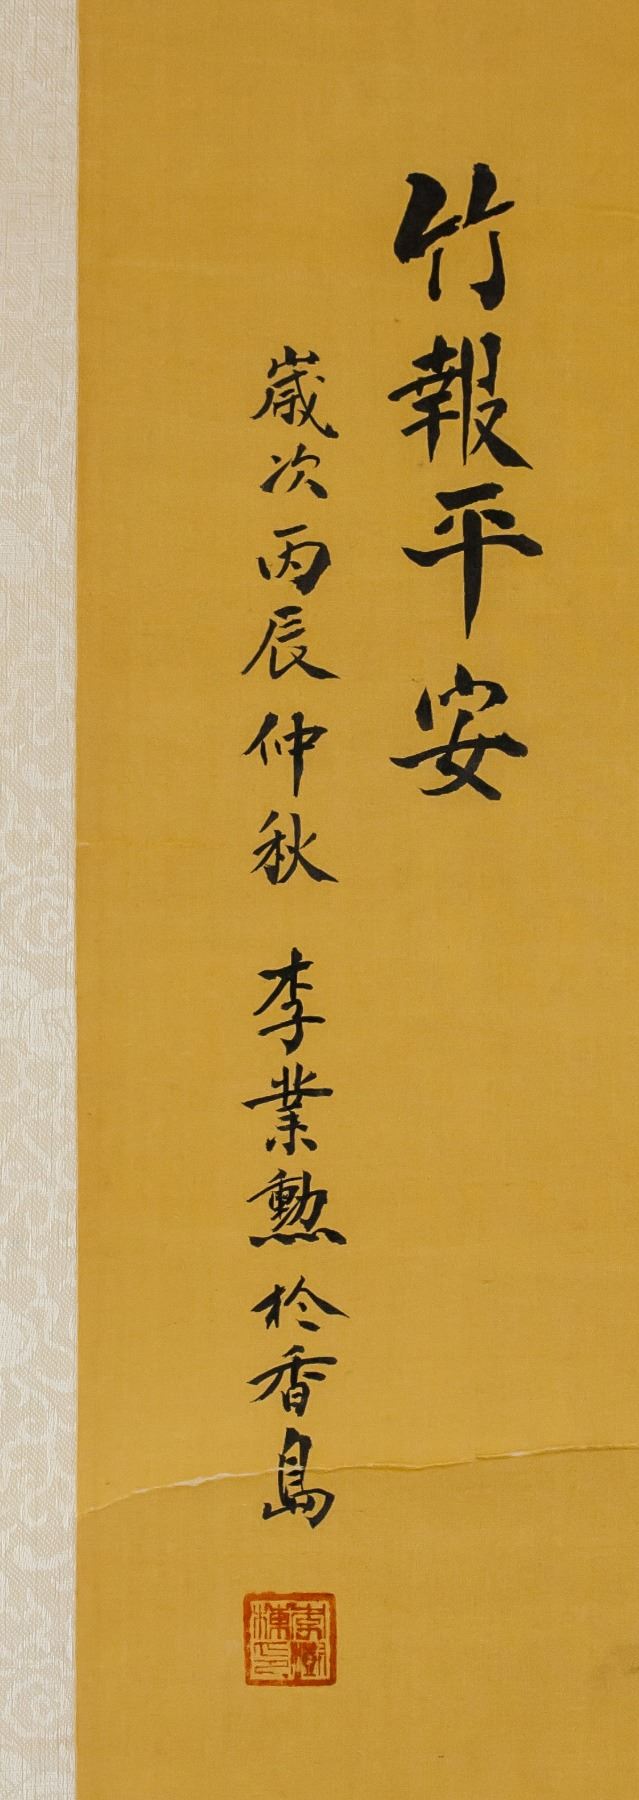 竹報平安
歲次丙辰仲秋 李業勲於香島